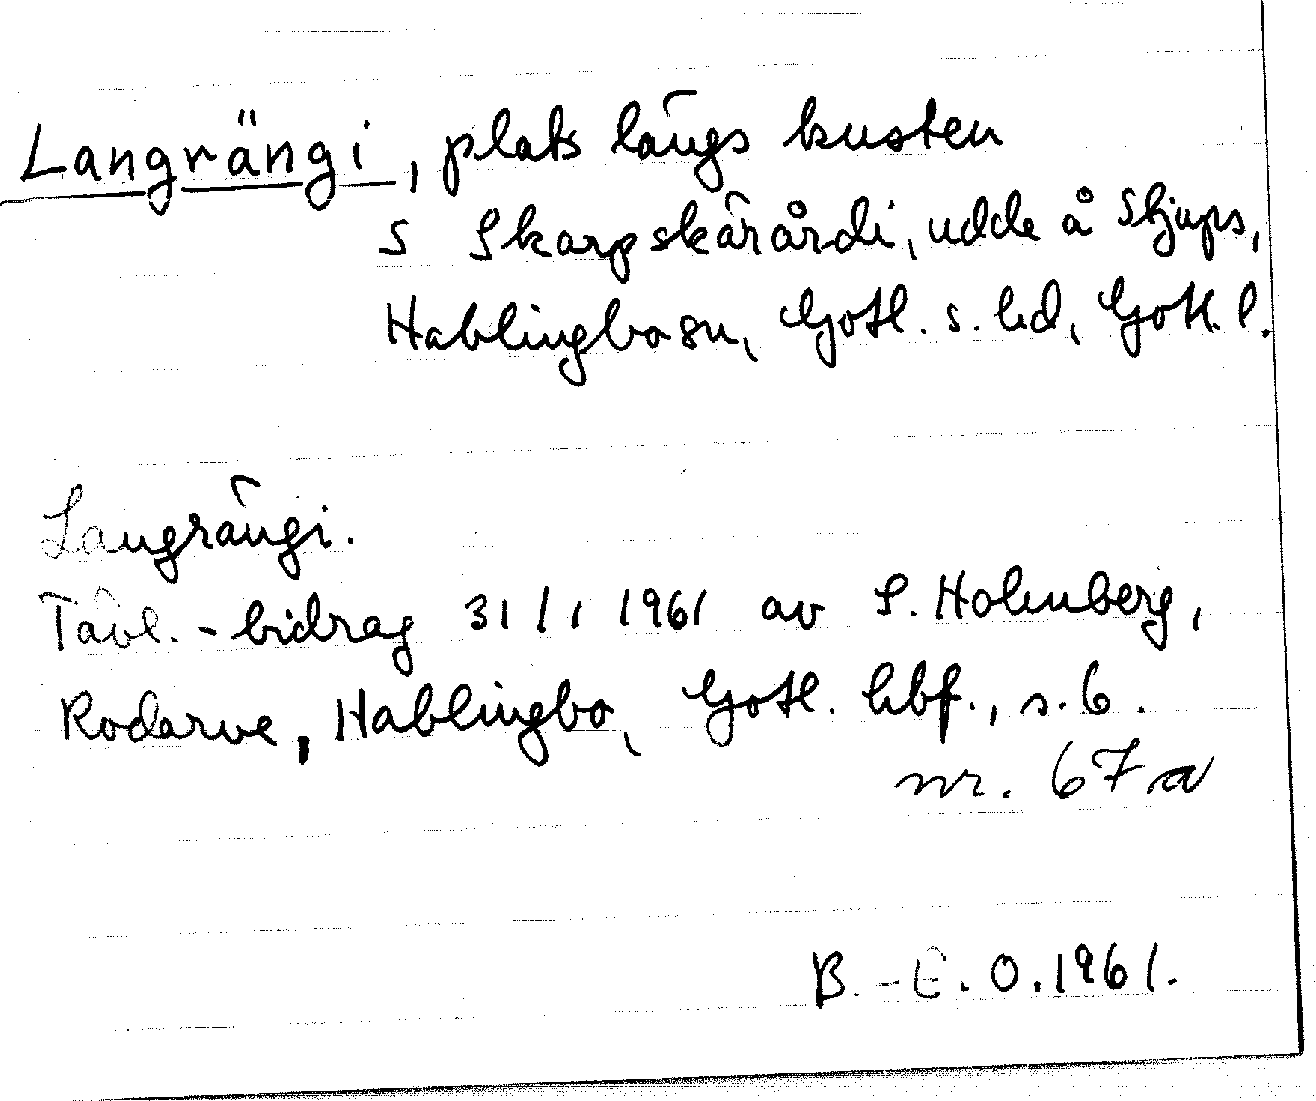 Langrängi, plats längs kusten
S Skarpskärårdi, udde å Stjups,
Hablingbo sn, Gotl. s. hd, Gotl. l.
Langrängi.
Tävl. - bidrag 31/1 1961 av S. Holmberg,
Rodarve, Hablingbo, Gotl. hbf., s. 6.
nr. 67 a
B.-E. O. 1961.